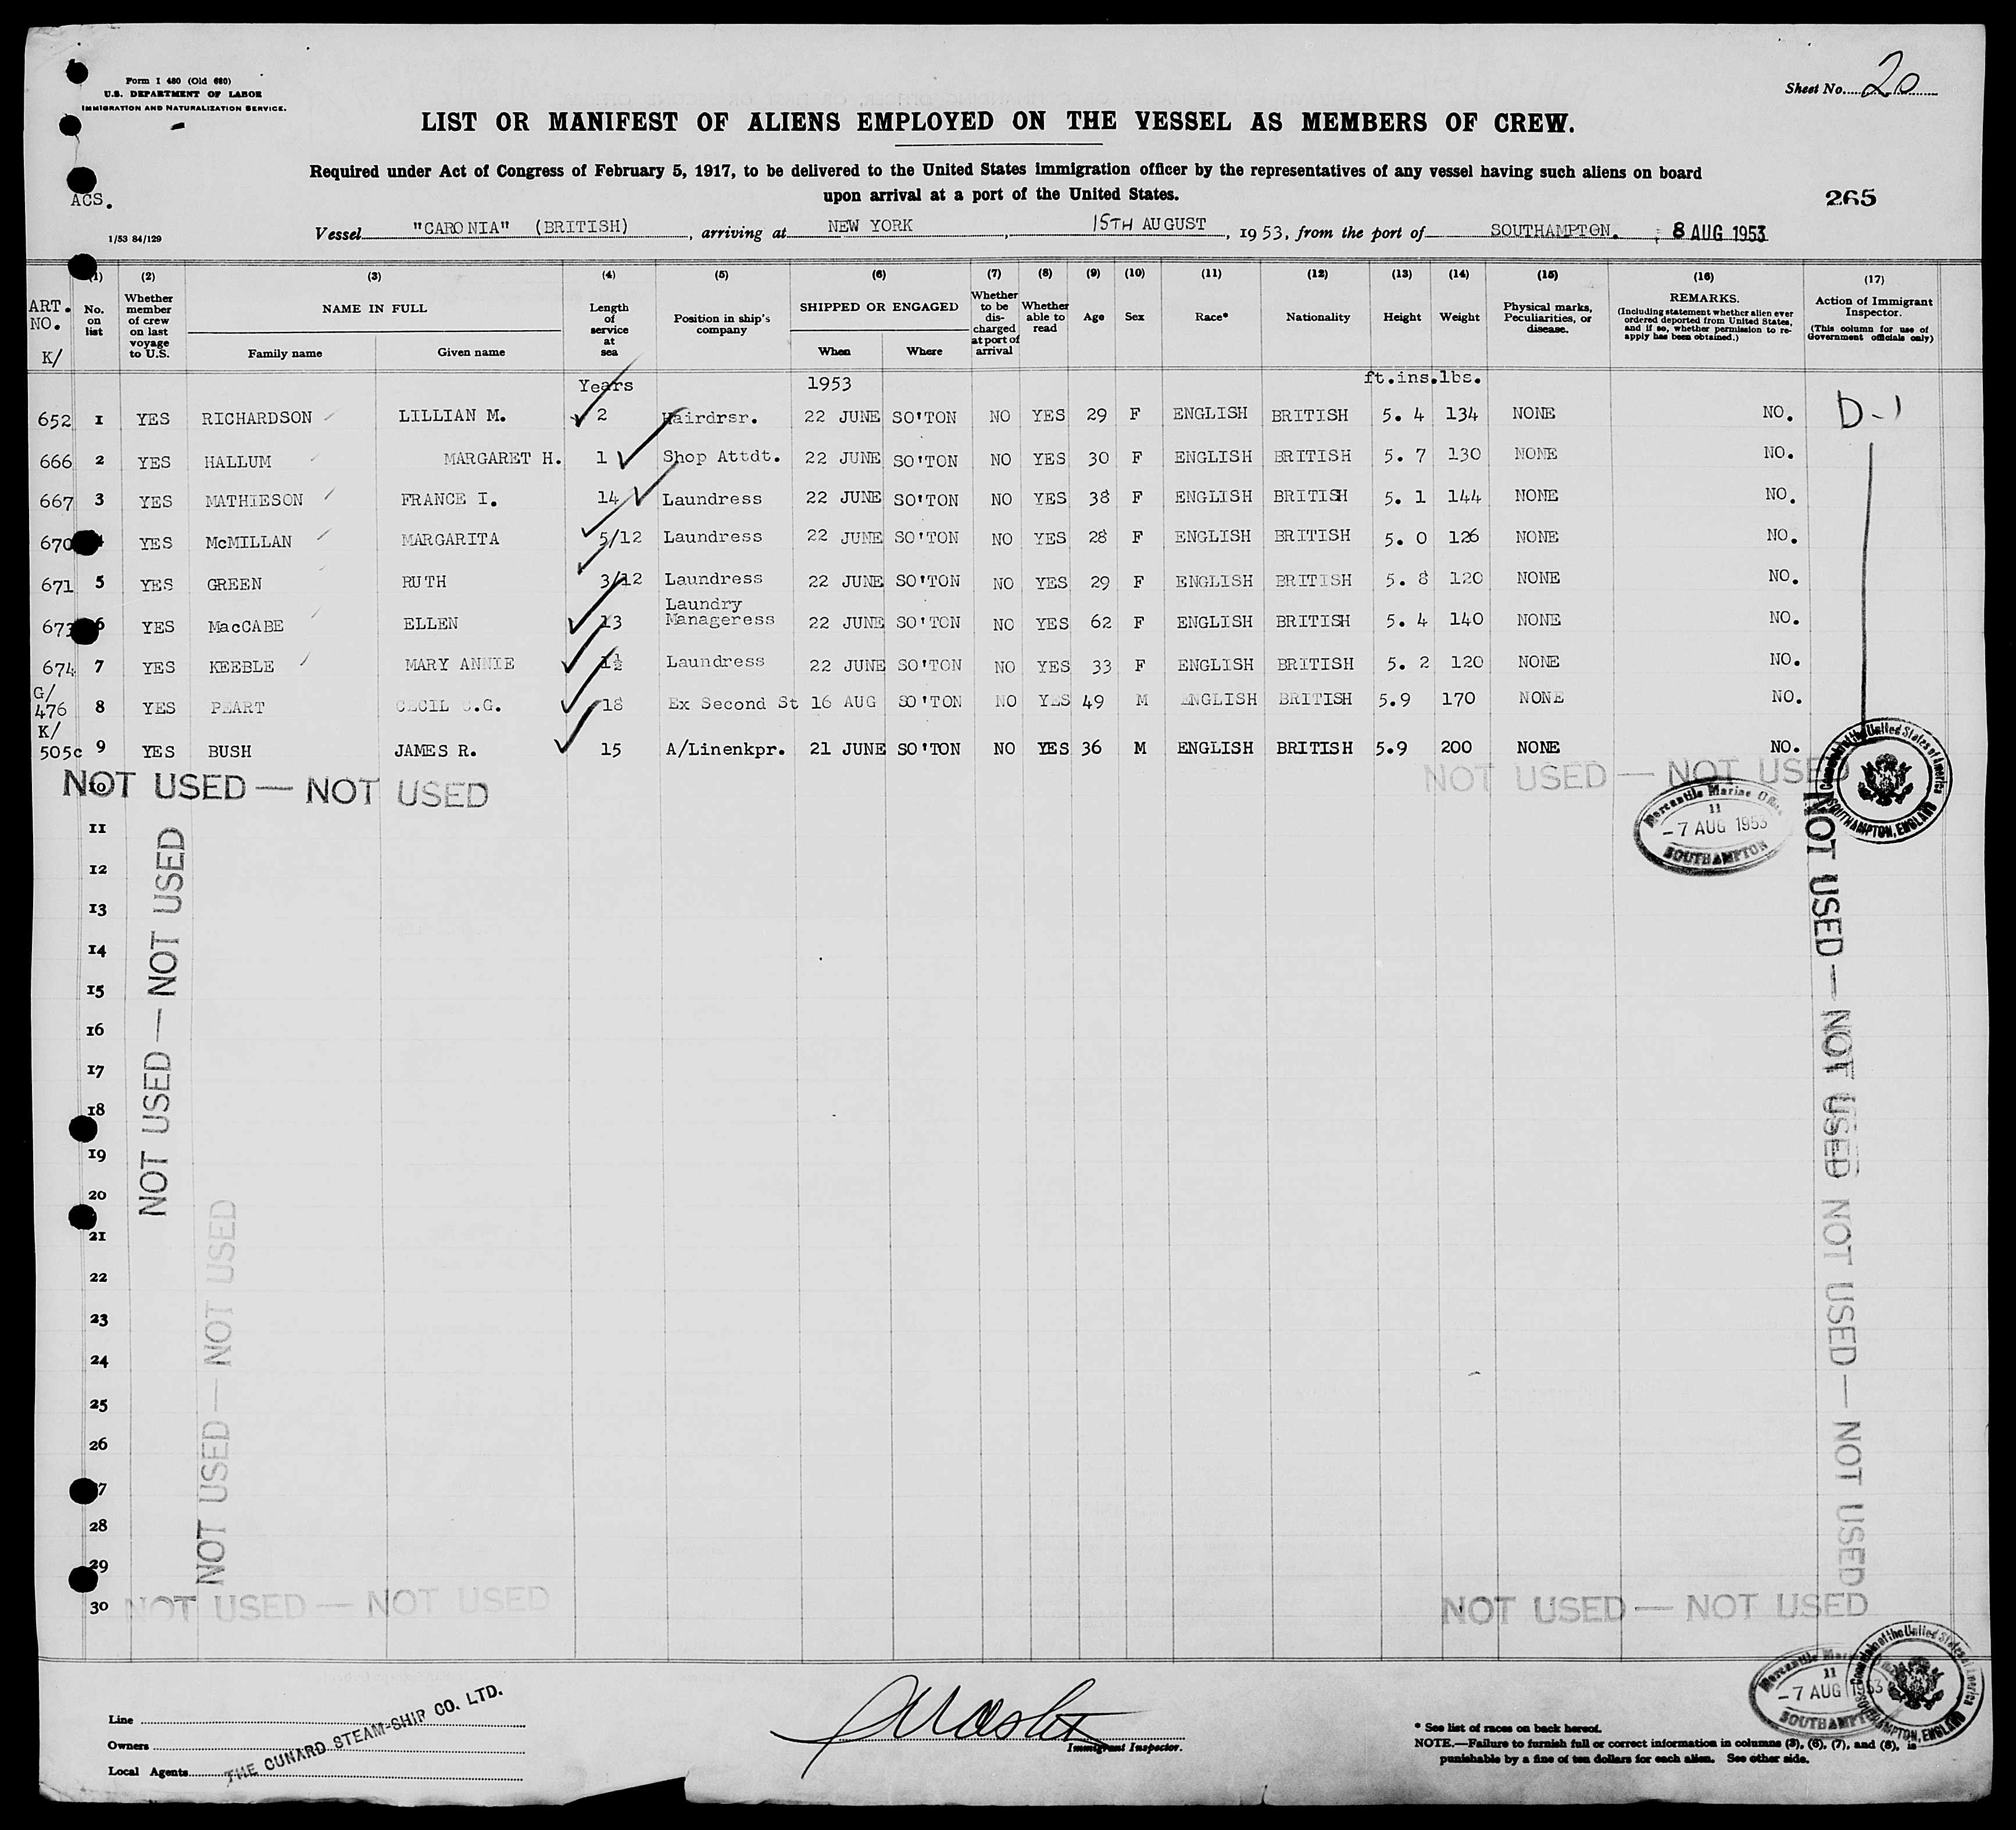 Form I 480 (Old 680)
U.S. DEPARTMENT OF LABOR
IMMIGRATION AND NATURALIZATION SERVICE.
Sheet No. 20
LIST OR MANIFEST OF ALIENS EMPLOYED ON THE VESSEL AS MEMBERS OF CREW.
Required under Act of Congress of February 5, 1917, to be delivered to the United States immigration officer by the representatives of any vessel having such aliens on board
upon arrival at a port of the United States.
ACS.
265
1/53 84/129
Vessel "CARONIA" (BRITISH), arriving at NEW YORK, 15TH AUGUST, 1953, from the port of SOUTHAMPTON. 8 AUG 1953
(1) (2) (3) (4) (5) (6) (7) (8) (9) (10) (11) (12) (13) (14) (15) (16) (17)
ART. NO. K/
No. on list
Whether member of crew on last voyage to U.S.
NAME IN FULL
Family name
Given name
Length of service at sea
Position in ship's company
SHIPPED OR ENGAGED
When
Where
Whether to be discharged at port of arrival
Whether able to read
Age
Sex
Race*
Nationality
Height
Weight
Physical marks, Peculiarities, or disease.
REMARKS.
(Including statement whether alien ever ordered deported from United States, and if so, whether permission to reapply has been obtained.)
Action of Immigrant Inspector.
(This column for use of Government officials only)
Years 1953 ft.ins.lbs.
652 1 YES RICHARDSON LILLIAN M. 2 Hairdrsr. 22 JUNE SO'TON NO YES 29 F ENGLISH BRITISH 5. 4 134 NONE NO. D-1
666 2 YES HALLUM MARGARET H. 1 Shop Attdt. 22 JUNE SO'TON NO YES 30 F ENGLISH BRITISH 5. 7 130 NONE NO.
667 3 YES MATHIESON FRANCE I. 14 Laundress 22 JUNE SO'TON NO YES 38 F ENGLISH BRITISH 5. 1 144 NONE NO.
670 YES McMILLAN MARGARITA 5/12 Laundress 22 JUNE SO'TON NO YES 28 F ENGLISH BRITISH 5. 0 126 NONE NO.
671 5 YES GREEN RUTH 3/12 Laundress 22 JUNE SO'TON NO YES 29 F ENGLISH BRITISH 5. 8 120 NONE NO.
673 6 YES MacCABE ELLEN 13 Laundry Manageress 22 JUNE SO'TON NO YES 62 F ENGLISH BRITISH 5. 4 140 NONE NO.
674 7 YES KEEBLE MARY ANNIE 1½ Laundress 22 JUNE SO'TON NO YES 33 F ENGLISH BRITISH 5. 2 120 NONE NO.
G/
476 8 YES PEART CECIL C.G. 18 Ex Second St 16 AUG SO'TON NO YES 49 M ENGLISH BRITISH 5.9 170 NONE NO.
K/
505c 9 YES BUSH JAMES R. 15 A/Linenkpr. 21 JUNE SO'TON NO YES 36 M ENGLISH BRITISH 5.9 200 NONE NO.
10
NOT USED — NOT USED
NOT USED — NOT USED
Consulate of the United States of America
SOUTHAMPTON, ENGLAND
Mercantile Marine Office
11
-7 AUG 1953
SOUTHAMPTON
11
12
13
14
15
16
17
18
19
20
21
22
23
24
25
26
27
28
29
30
NOT USED — NOT USED
NOT USED — NOT USED
NOT USED — NOT USED NOT USED — NOT USED
NOT USED — NOT USED
NOT USED — NOT USED
Line
Owners
Local Agents
THE CUNARD STEAM-SHIP CO. LTD.
Immigrant Inspector.
* See list of races on back hereof.
NOTE.—Failure to furnish full or correct information in columns (3), (6), (7), and (8), is
punishable by a fine of ten dollars for each alien. See other side.
Mercantile
11
-7 AUG 1953
SOUTHAMPTON
Consulate of the United States of America
SOUTHAMPTON, ENGLAND